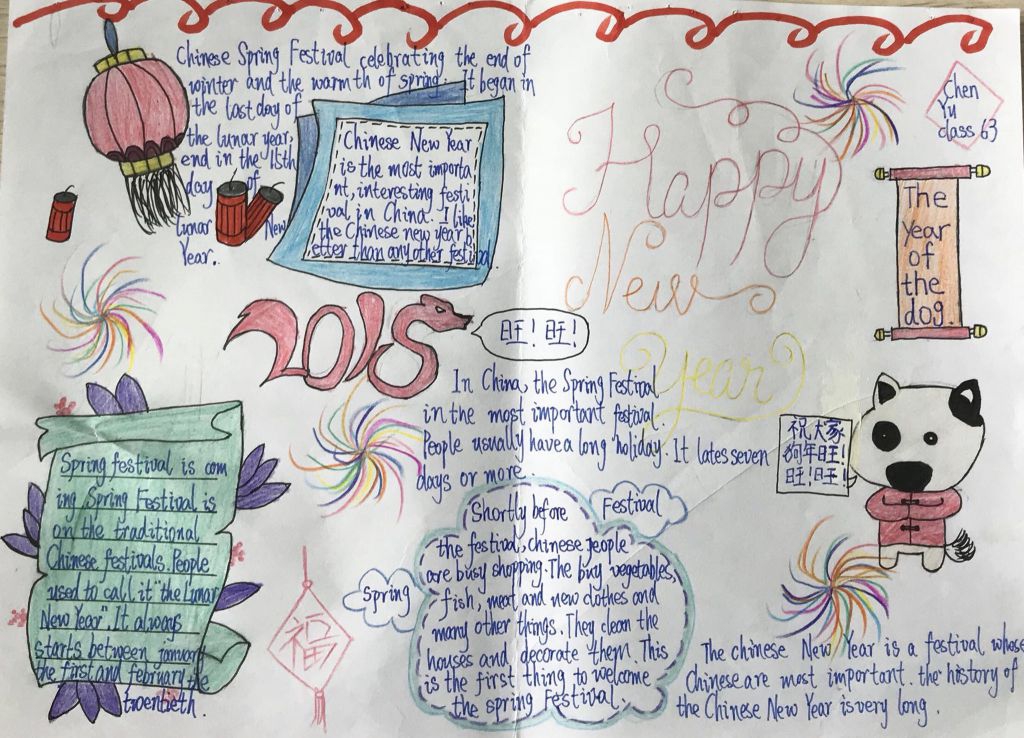 Chinese Spring Festival celebrating the end of
winter and the warmth of spring. It began in
the last day of
the lunar year,
end in the 15th
day of
lunar New
Year..
Chinese New Year
is the most importa
nt, interesting festi
val in China. I like
the Chinese new year b
etter than any other festival.
Happy
New
Year
Chen
Yu
class 63
The
Year
of
the
dog.
2018
旺!旺!
In China, the Spring Festival
in the most important festival.
People usually have a long holiday. It lates seven
days or more.
祝大家
狗年旺!
旺!旺!
Spring festival is com
ing Spring Festival is
on the traditional
Chinese festivals. People
used to call it "the Lunar
New Year". It always
starts between january
the first and february the
twentieth.
福
Spring
Festival
Shortly before
the festival, chinese people
are busy shopping. The buy vegetables,
fish, meat and new clothes and
many other things. They clean the
houses and decorate them. This
is the first thing to welcome
the spring Festival.
The chinese New Year is a festival whose
Chinese are most important. the history of
the Chinese New Year is very long.